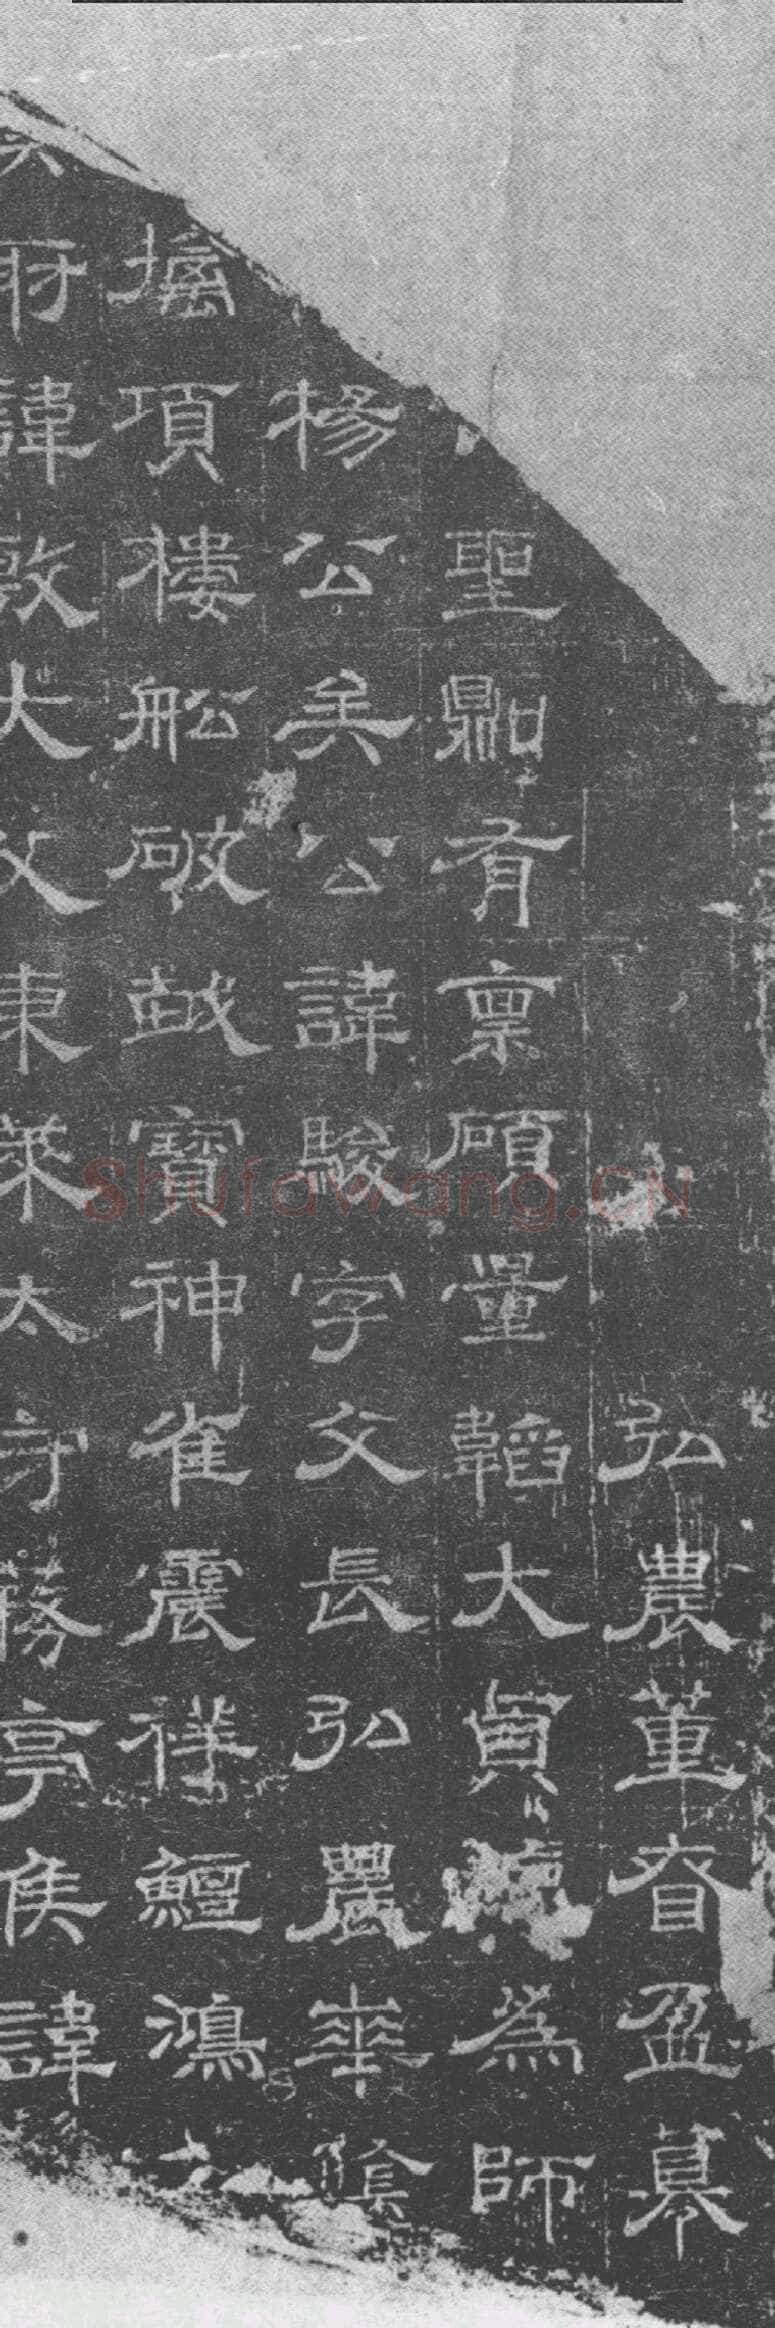 弘農董眘盈篡
聖鼎有稟碩量韜大貞為師
楊公矣公諱駿字父長弘農華陰
擒項樓船破越寶神雀震祥鱣鴻
六
諱敦大父東萊太守蓩亭侯諱
Shufawang.CN